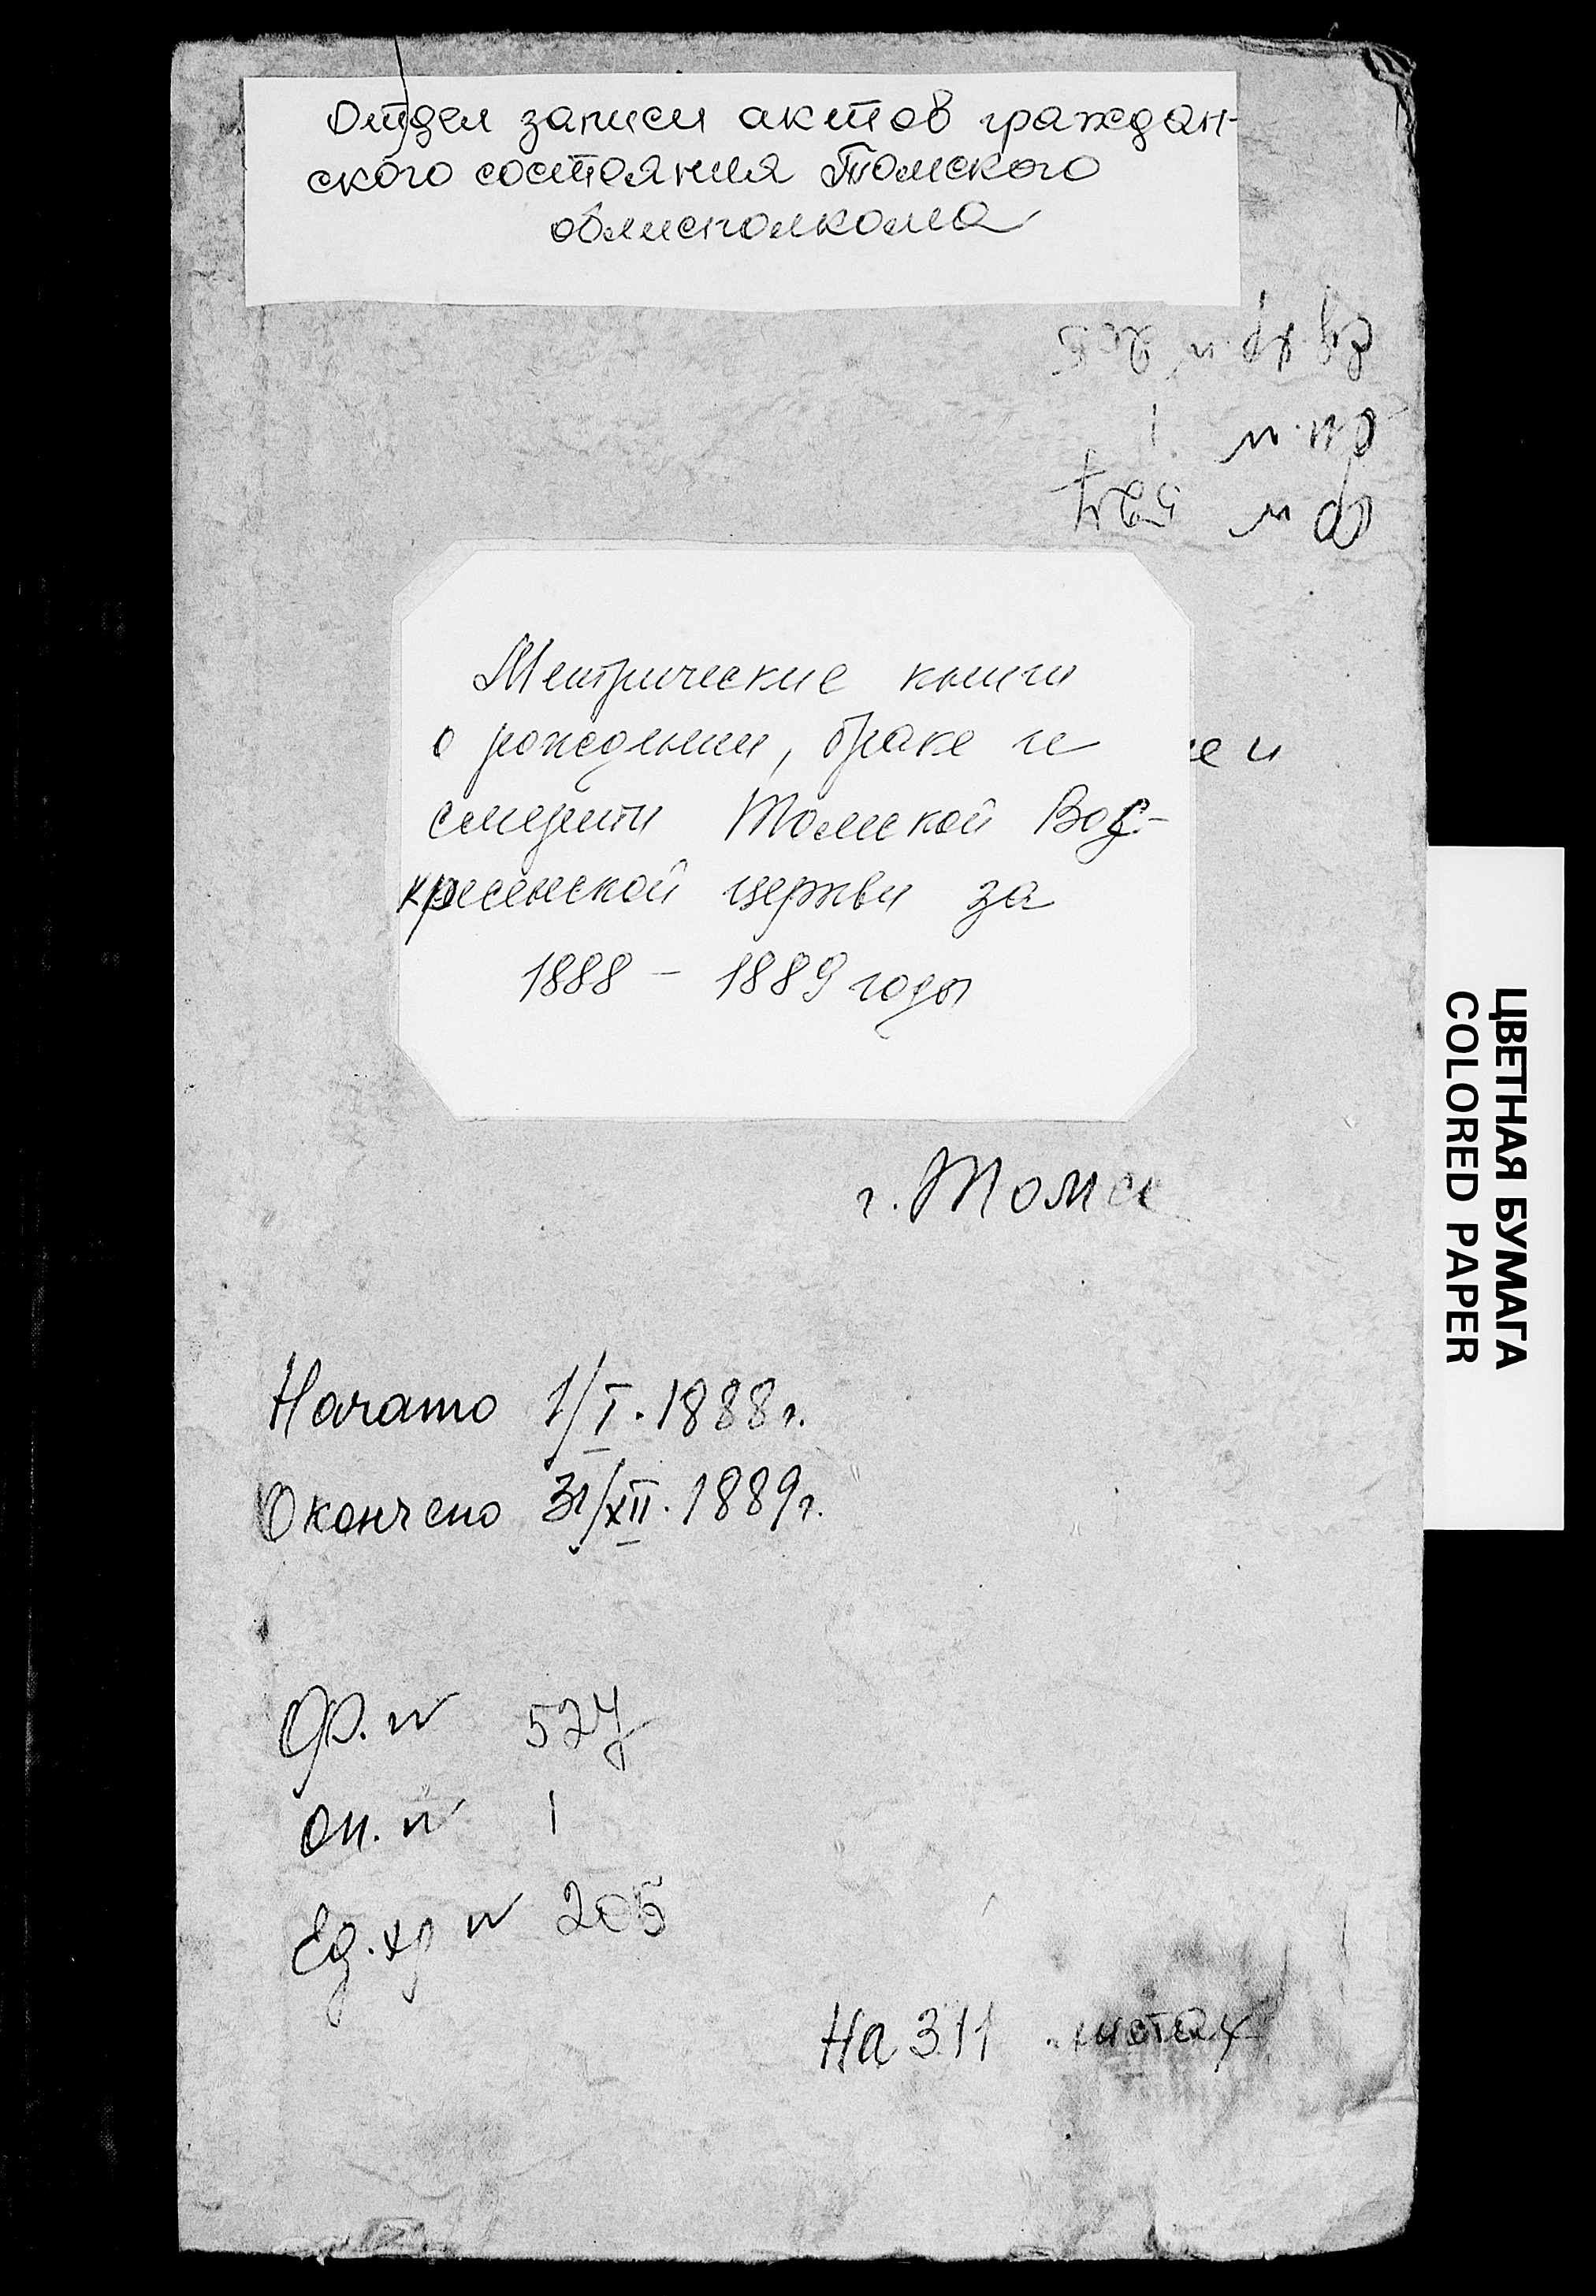 Отдел записи актов граждан-
ского состояния Томского
облисполкома
Ед. хр. № 205
Оп. № 1
Ф № 527
Метрические книги
о рождении, браке и
смерти Томской Вос-
кресенской церкви за
1888 - 1889 годы
г. Томск
Начато 1/I. 1888 г.
Окончено 31/XII. 1889 г.
Ф. № 527
Оп. № 1
Ед. хр № 205
На 311 листах
ЦВЕТНАЯ БУМАГА
COLORED PAPER